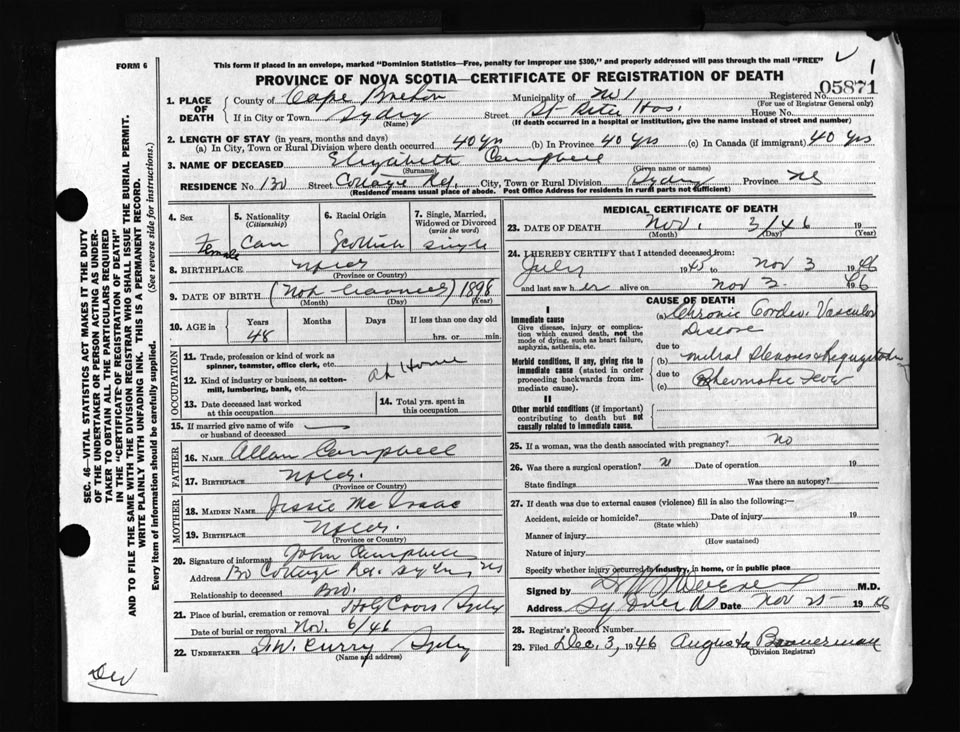 FORM 6
This form if placed in an envelope, marked "Dominion Statistics—Free, penalty for improper use $300," and properly addressed will pass through the mail "FREE"
PROVINCE OF NOVA SCOTIA—CERTIFICATE OF REGISTRATION OF DEATH
05871
1. PLACE OF DEATH County of Cape Breton Municipality of No 1 Registered No.
(For use of Registrar General only)
If in City or Town Sydney Street St Hos. House No.
(Name) (If death occurred in a hospital or institution, give the name instead of street and number)
2. LENGTH OF STAY (in years, months and days)
(a) In City, Town or Rural Division where death occurred 40 yrs (b) In Province 40 yrs (c) In Canada (if immigrant) 40 yrs
3. NAME OF DECEASED Elizabeth Campbell
(Surname) (Given name or names)
RESIDENCE No. 130 Street Cottage Rd. City, Town or Rural Division Sydney Province NS
(Residence means usual place of abode. Post Office Address for residents in rural parts not sufficient)
4. Sex Female
5. Nationality (Citizenship) Can
6. Racial Origin Scottish
7. Single, Married, Widowed or Divorced (write the word) single
8. BIRTHPLACE
(Province or Country)
9. DATE OF BIRTH (Not) 1898
(Month) (Day) (Year)
10. AGE in Years 48 Months Days If less than one day old
hrs. or min.
OCCUPATION
11. Trade, profession or kind of work as spinner, teamster, office clerk, etc. at Home
12. Kind of industry or business, as cotton-mill, lumbering, bank, etc.
13. Date deceased last worked at this occupation
14. Total yrs. spent in this occupation
15. If married give name of wife or husband of deceased
FATHER
16. Name Allan Campbell
17. Birthplace
(Province or Country)
MOTHER
18. Maiden Name Jessie McIsaac
19. Birthplace
(Province or Country)
20. Signature of informant John Campbell
Address 130 Cottage Rd. Sydney NS
Relationship to deceased Bro.
21. Place of burial, cremation or removal Holy Cross Sydney
Date of burial or removal Nov. 6/46
22. UNDERTAKER Curry Sydney
(Name and address)
MEDICAL CERTIFICATE OF DEATH
23. DATE OF DEATH Nov. 3/46 19
(Month) (Day) (Year)
24. I HEREBY CERTIFY that I attended deceased from:
July 1945 to Nov 3 1946
and last saw her alive on Nov 2. 1946
CAUSE OF DEATH
I
Immediate cause
Give disease, injury or complication which caused death, not the mode of dying, such as heart failure, asphyxia, asthenia, etc.
(a) Chronic Cardio. Vascular Disease
due to
Morbid conditions, if any, giving rise to immediate cause (stated in order proceeding backwards from immediate cause).
(b) Mitral Stenosis & Regurgitation
due to
(c) Rheumatic Fever
II
Other morbid conditions (if important) contributing to death but not causally related to immediate cause.
25. If a woman, was the death associated with pregnancy? no
26. Was there a surgical operation? Date of operation 19
State findings Was there an autopsy?
27. If death was due to external causes (violence) fill in also the following:—
Accident, suicide or homicide? Date of injury 19
(State which)
Manner of injury
(How sustained)
Nature of injury
Specify whether injury occurred in industry, in home, or in public place
Signed by M.D.
Address Date Nov 25 1946
28. Registrar's Record Number
29. Filed Dec. 3, 1946 Augusta Bannerman
(Division Registrar)
SEC. 46—VITAL STATISTICS ACT MAKES IT THE DUTY
OF THE UNDERTAKER OR PERSON ACTING AS UNDER-
TAKER TO OBTAIN ALL THE PARTICULARS REQUIRED
IN THE "CERTIFICATE OF REGISTRATION OF DEATH"
AND TO FILE THE SAME WITH THE DIVISION REGISTRAR WHO SHALL ISSUE THE BURIAL PERMIT.
WRITE PLAINLY WITH UNFADING INK. THIS IS A PERMANENT RECORD.
Every item of information should be carefully supplied. (See reverse side for instructions.)